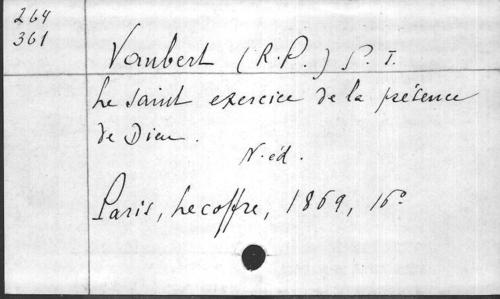 264
361
Vaubert (R.P.) S. J.
Le saint exercice de la présence
de Dieu.
N. éd.
Paris, Lecoffre, 1869, 16º